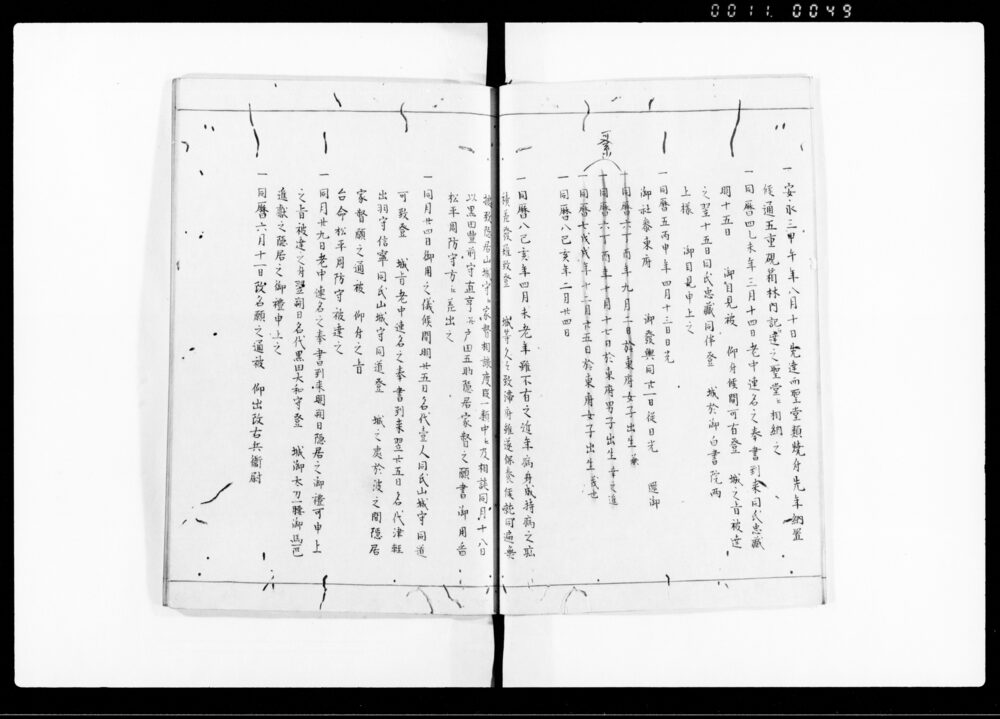 0011 0049
一安永三甲午年八月十日先達而聖堂類焼身先年納置
候通五重硯箱林門記達之聖堂江相納之
一同暦四乙未年三月十四日老中連名之奉書到来同氏忠蔵
明十五日 御目見被 仰身候間可有登 城之旨被達
之翌十五日同氏忠蔵同伴登 城於御白書院両
上様 御目見申上之
一同暦五丙申年四月十三日日光
御社参東府 御發輿同廿一日従日光 還御
一同暦六丁酉年九月二日於東府女子出生
一同暦六丁酉年十月十七日於東府男子出生
一同暦七戊戌年十二月廿五日於東府女子出生
一同暦八己亥年二月廿四日
一同暦八己亥年四月未老年雖不有之近年病身成持病之疝
積差發雖致登 城等久々致滞府雖遂保養候
被致隠居山城守江家督相譲度段一類中江及相談同月十八日
以黒田豊前守直亨水戸田五助隠居家督之願書御用番
松平周防守方江差出之
一同月廿四日御用之儀候間明廿五日名代壹人同氏山城守同道
可致登 城旨老中連名之奉書到来翌廿五日名代津軽
出羽守信寧同氏山城守同道登 城之処於波之間隠居
家督願之通被 仰身之旨
台命松平周防守被達之
一同月廿九日老中連名之奉書到来明朔日隠居之御禮可申上
之旨被達之身翌朔日名代黒田大和守登 城御太刀一腰御馬一疋
進献之隠居之御禮申上之
一同暦六月十一日改名願之通被 仰出改右兵衛尉